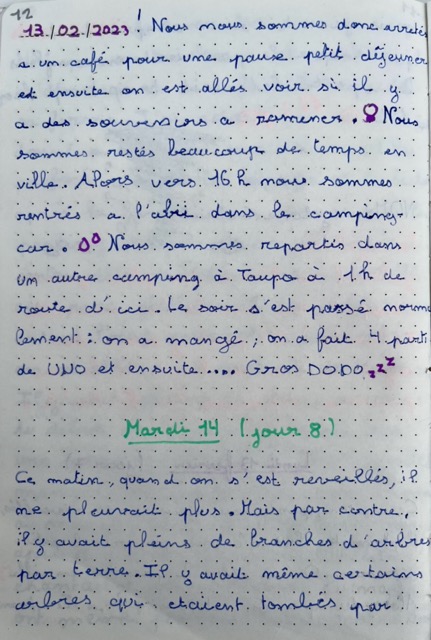 12
13/02/2023 ! Nous nous sommes donc arretés
a un café pour une pause petit déjeuner
et ensuite on est allés voir si il y
a des souvenirs a ramener. Nous
sommes restés beaucoup de temps en
ville. Alors vers 16h nous sommes
rentrés a l'abri dans le camping-
car. Nous sommes repartis dans
un autre camping à Taupo à 1h de
route d'ici. Le soir s'est passé norma
lement : on a mangé, on a fait 4 parti
de UNO et ensuite.... Gros DODO zzz
Mardi 14 (jour 8)
Ce matin, quand on s'est reveillés, il
ne pleuvait plus. Mais par contre,
il y avait pleins de branches d'arbres
par terre. Il y avait même certains
arbres qui etaient tombés par